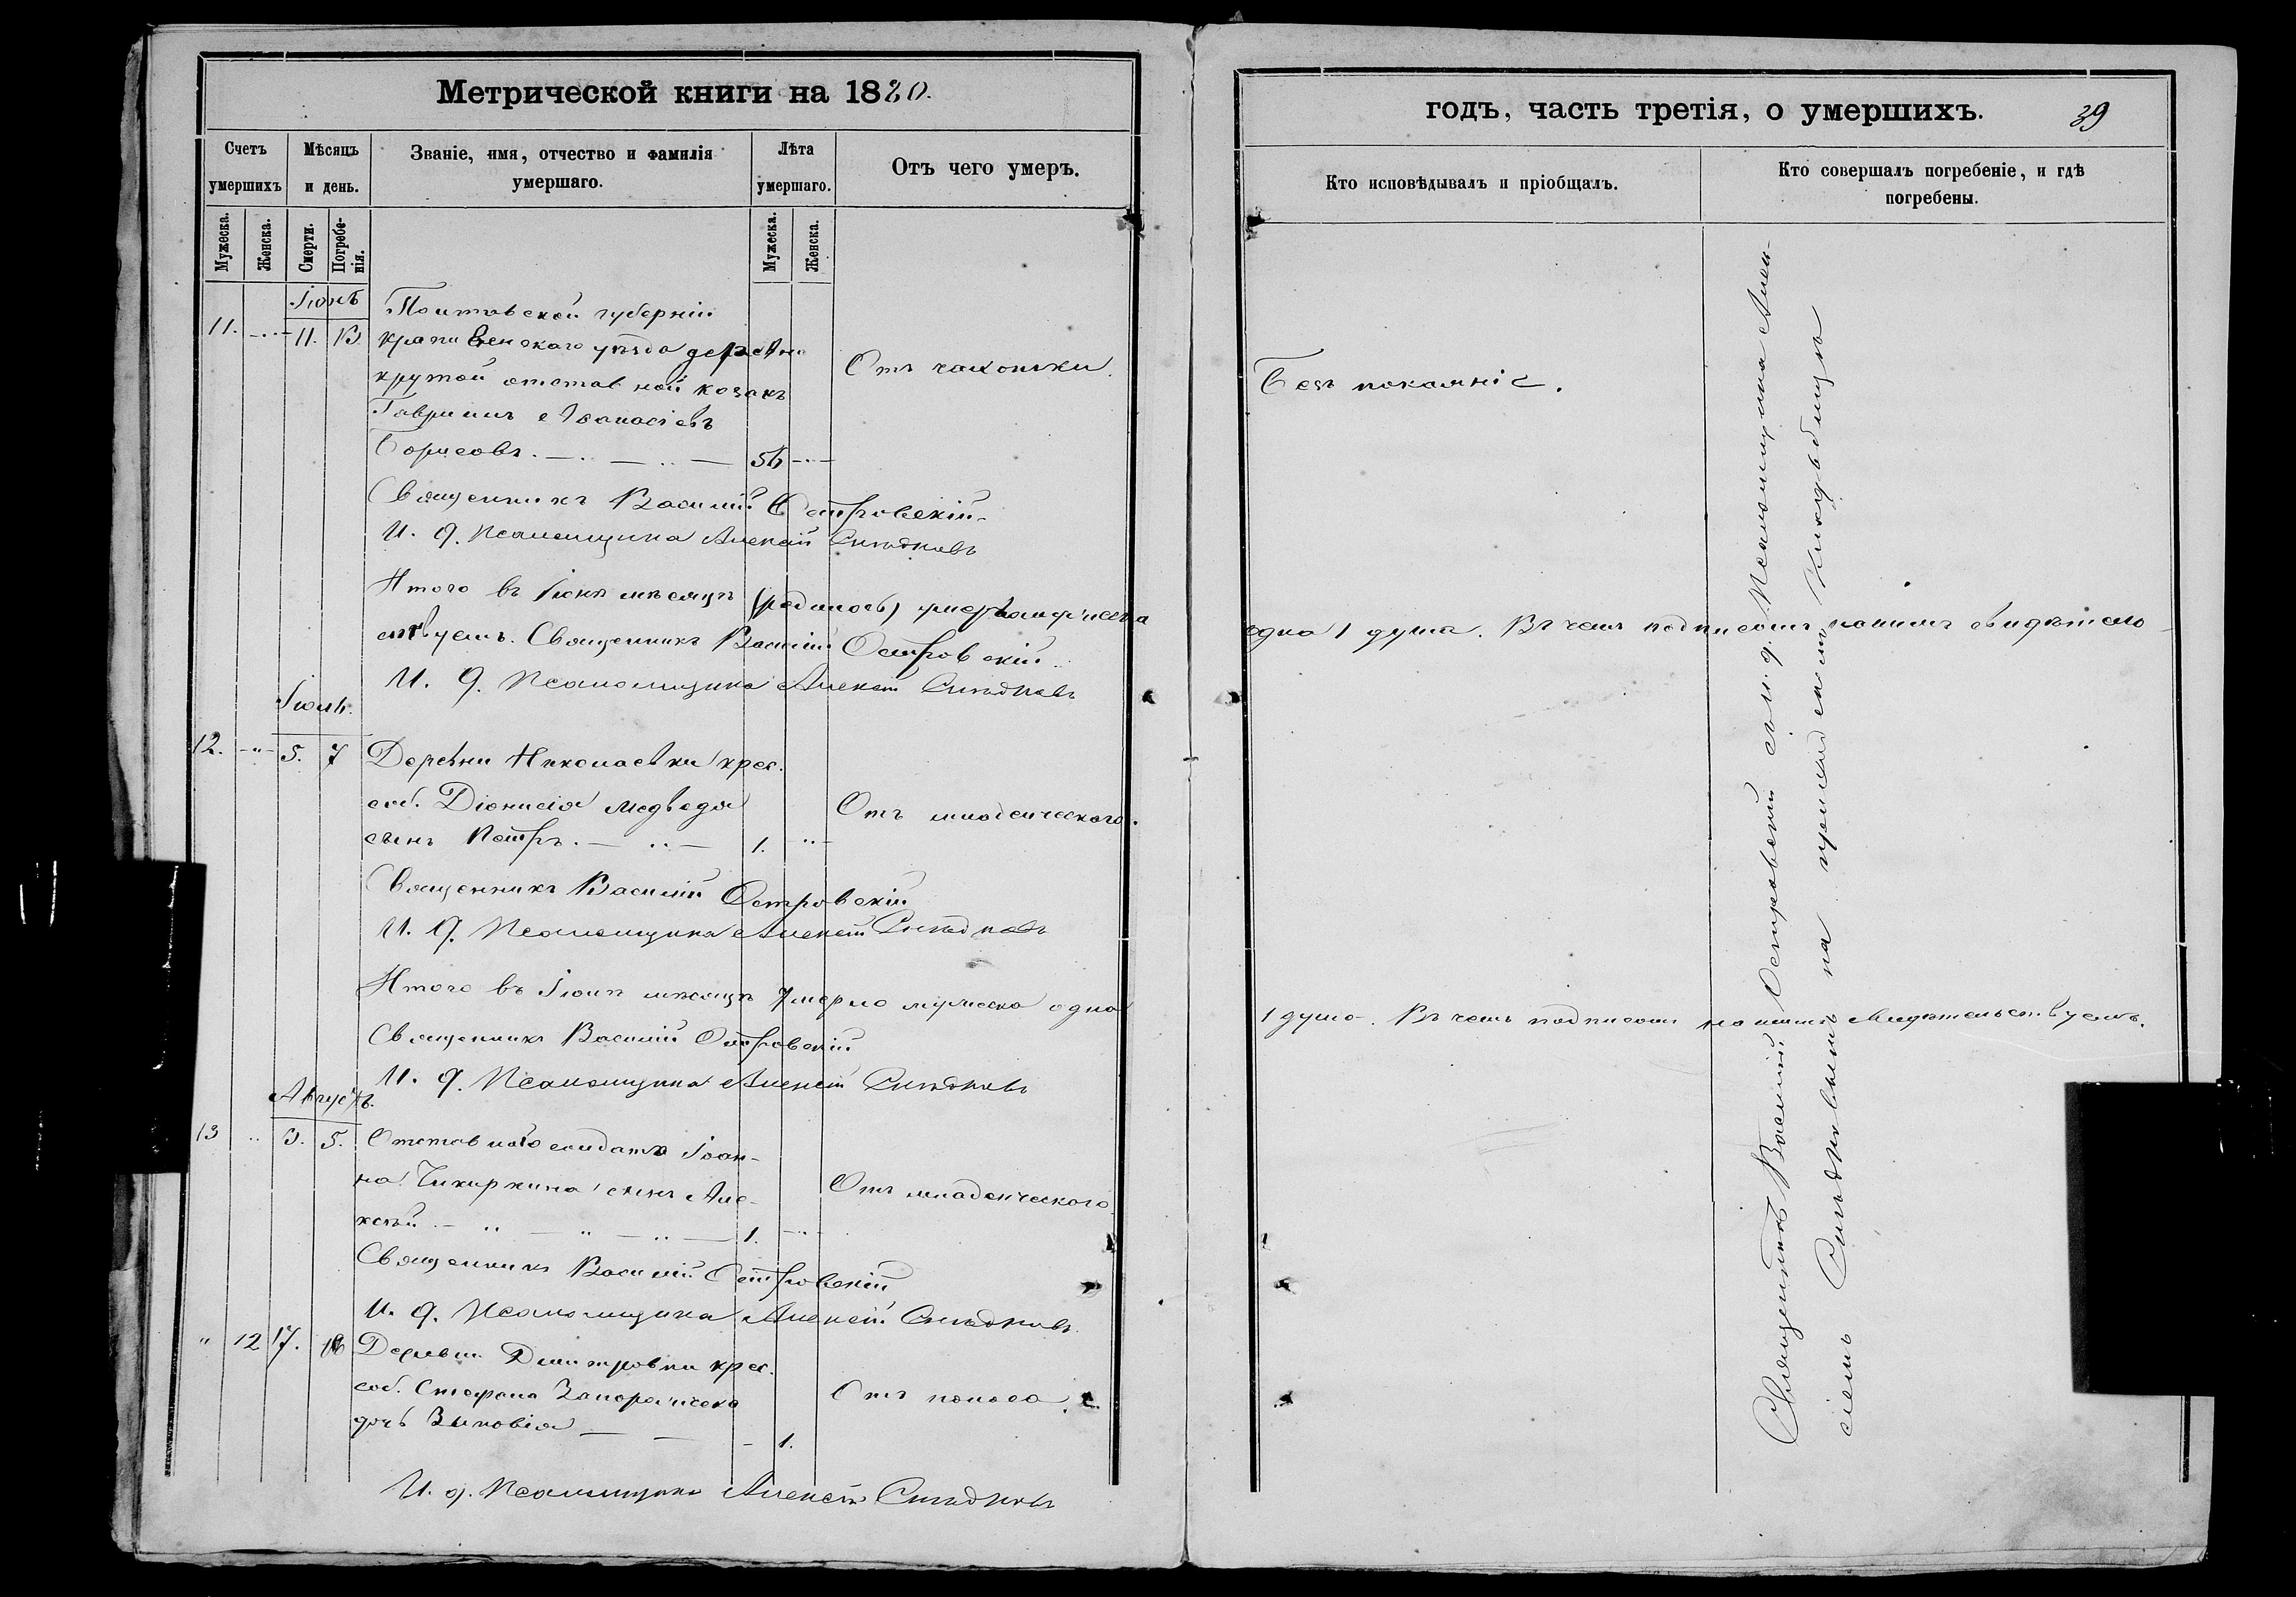 Метрической книги на 1880.
Счетъ умершихъ
Мѣсяцъ и день.
Званіе, имя, отчество и фамилія умершаго.
Лѣта умершаго.
Отъ чего умеръ.
Мужеска.
Женска.
Смерти.
Погребенія.
Мужеска.
Женска.
Іюнь
11. 11. 13.
Полтавской губерніи
уѣзда деревни
крутой отставной козакъ
Гавріилъ Аѳанасіевъ
Борисовъ.
Отъ чахотки.
Священникъ Василій Островскій
И. д. Псаломщика Алексѣй
Итого въ Іюнѣ мѣсяцѣ (родилось) умерло мужеска
ствуемъ. Священникъ Василій Островскій
И. д. Псаломщика Алексѣй
Іюль.
12. 5. 7 Деревни Николаевки крес.
соб. Діонисія Медведя
сынъ Петръ. 1.
Отъ младенческаго.
Священникъ Василій Островскій
И. д. Псаломщика Алексѣй
Итого въ Іюлѣ мѣсяцѣ умерло мужеска одна
Священникъ Василій Островскій
И. д. Псаломщика Алексѣй
Августъ.
13 3. 5. Отставного солдата Іоан-
на Чикиркина сынъ Але-
ксѣй 1.
Отъ младенческаго
Священникъ Василій Островскій
И. д. Псаломщика Алексѣй
" 12 17. Деревни Димитровки крес.
соб. Стефана
дочь Зиновія 1.
Отъ поноса.
И. д. Псаломщика Алексѣй
годъ, часть третія, о умершихъ.
39
Кто исповѣдывалъ и пріобщалъ.
Кто совершалъ погребеніе, и гдѣ погребены.
Безъ покаянія.
одна 1 душа. Въ чемъ подписомъ нашимъ свидѣтель-
1 душа. Въ чемъ подписомъ нашимъ свидѣтельствуемъ.
Священникъ Василій Островскій съ и. д. Псаломщика Алек-
сіемъ на приходскомъ кладбищѣ